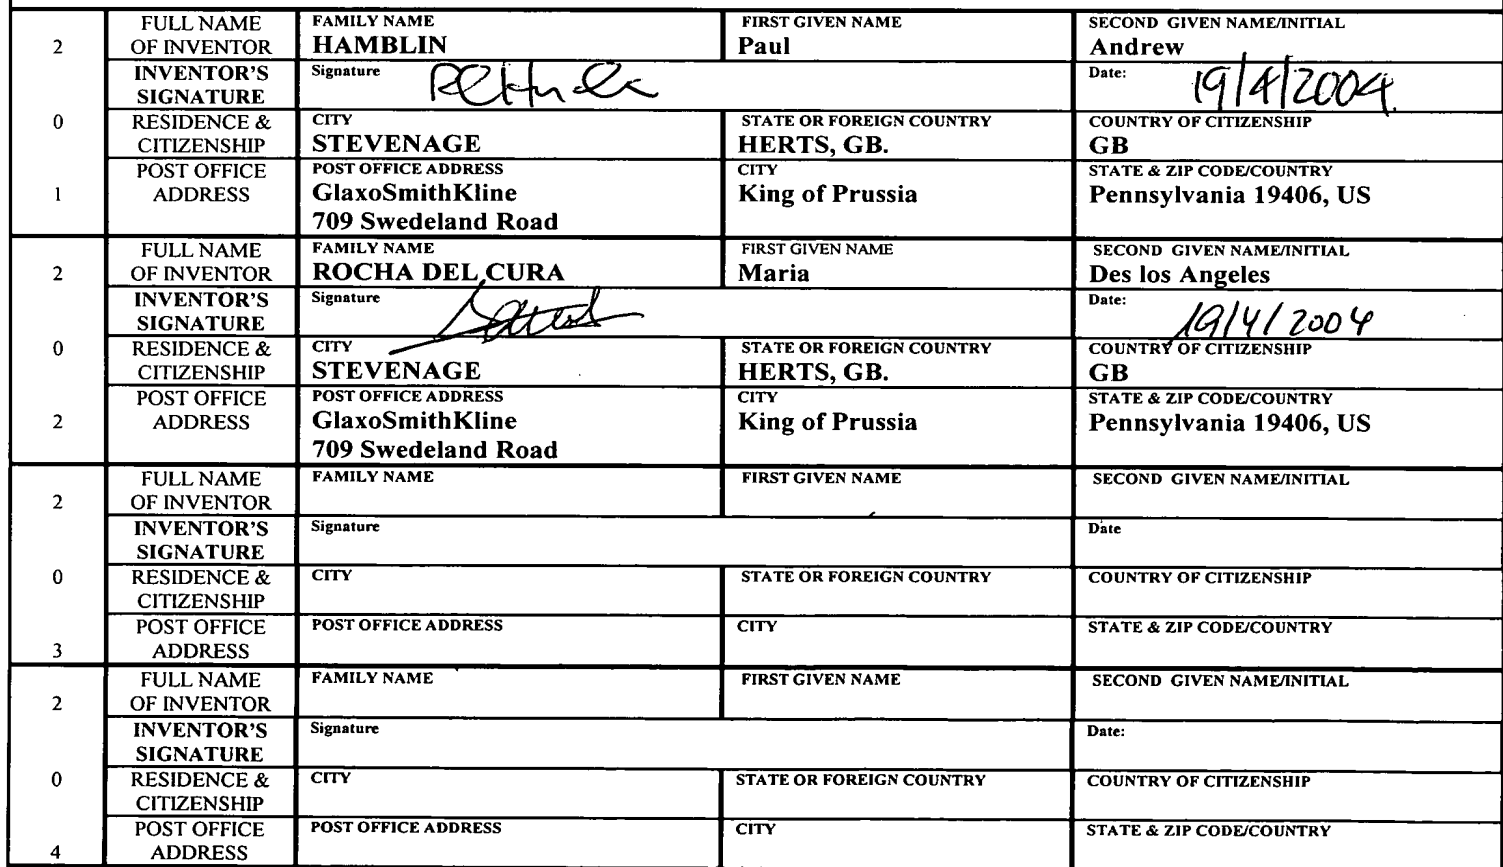 2 FULL NAME OF INVENTOR FAMILY NAME HAMBLIN FIRST GIVEN NAME Paul SECOND GIVEN NAME/INITIAL Andrew
INVENTOR'S SIGNATURE Signature Date: 19/4/2004
0 RESIDENCE & CITIZENSHIP CITY STEVENAGE STATE OR FOREIGN COUNTRY HERTS, GB. COUNTRY OF CITIZENSHIP GB
1 POST OFFICE ADDRESS POST OFFICE ADDRESS GlaxoSmithKline 709 Swedeland Road CITY King of Prussia STATE & ZIP CODE/COUNTRY Pennsylvania 19406, US
2 FULL NAME OF INVENTOR FAMILY NAME ROCHA DEL CURA FIRST GIVEN NAME Maria SECOND GIVEN NAME/INITIAL Des los Angeles
INVENTOR'S SIGNATURE Signature Date: 19/4/2004
0 RESIDENCE & CITIZENSHIP CITY STEVENAGE STATE OR FOREIGN COUNTRY HERTS, GB. COUNTRY OF CITIZENSHIP GB
2 POST OFFICE ADDRESS POST OFFICE ADDRESS GlaxoSmithKline 709 Swedeland Road CITY King of Prussia STATE & ZIP CODE/COUNTRY Pennsylvania 19406, US
2 FULL NAME OF INVENTOR FAMILY NAME FIRST GIVEN NAME SECOND GIVEN NAME/INITIAL
INVENTOR'S SIGNATURE Signature Date
0 RESIDENCE & CITIZENSHIP CITY STATE OR FOREIGN COUNTRY COUNTRY OF CITIZENSHIP
3 POST OFFICE ADDRESS POST OFFICE ADDRESS CITY STATE & ZIP CODE/COUNTRY
2 FULL NAME OF INVENTOR FAMILY NAME FIRST GIVEN NAME SECOND GIVEN NAME/INITIAL
INVENTOR'S SIGNATURE Signature Date:
0 RESIDENCE & CITIZENSHIP CITY STATE OR FOREIGN COUNTRY COUNTRY OF CITIZENSHIP
4 POST OFFICE ADDRESS POST OFFICE ADDRESS CITY STATE & ZIP CODE/COUNTRY